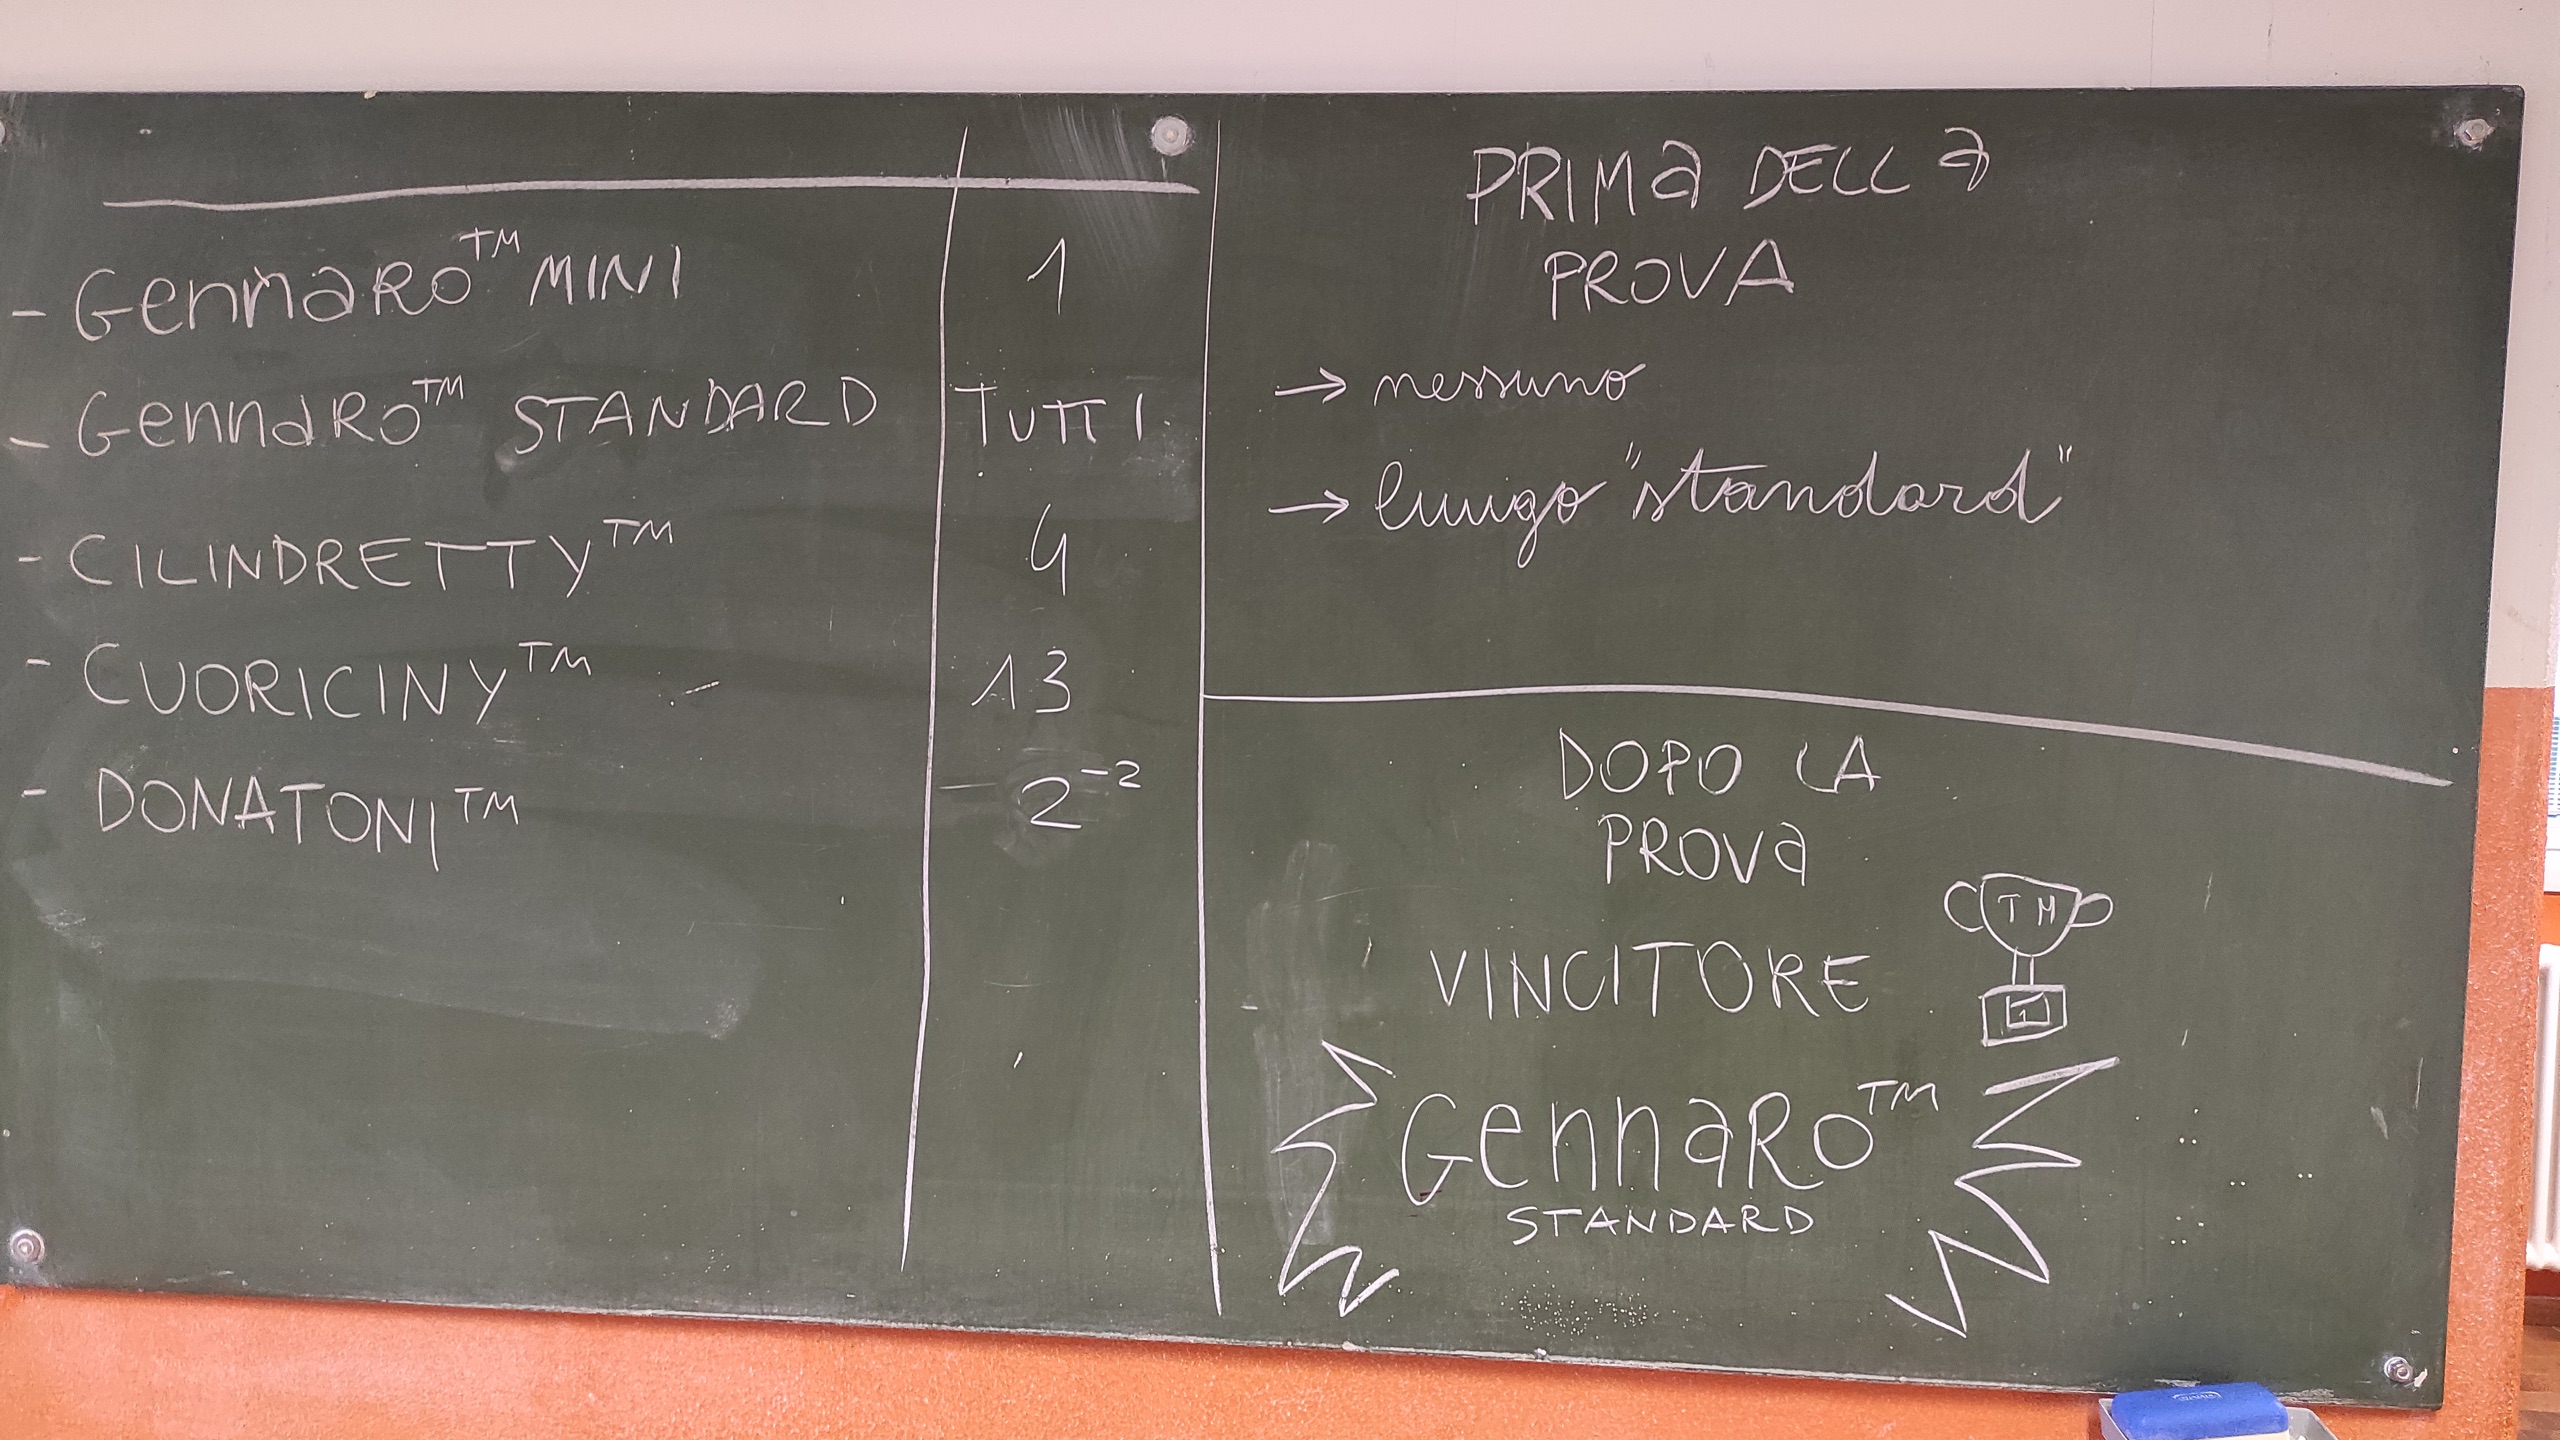 - GennaRO™ MINI 1
- GennaRO™ STANDARD TUTTI
- CILINDRETTY™ 4
- CUORICINY™ 13
- DONATONI™ 2⁻²
PRIMa DELLa
PROVA
→ nessuno
→ "standard"
DOPO LA
PROVa
VINCITORE
TM
1
GennaRO™
STANDARD